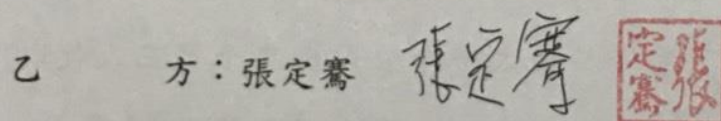 乙 方：張定騫 張定騫 張定騫